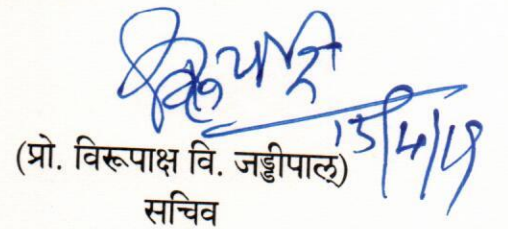 15/4/19
(प्रो. विरूपाक्ष वि. जड्डीपाल्)
सचिव